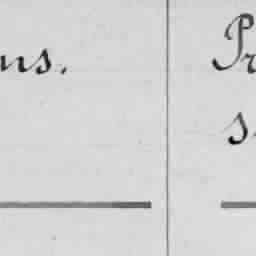 ns.
Pr
s